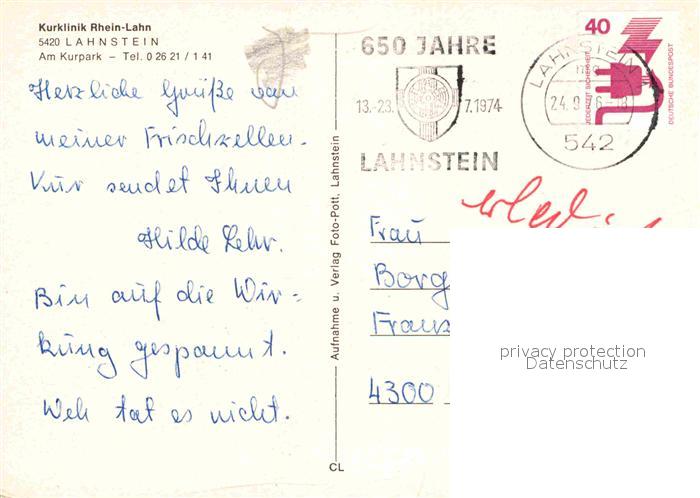 Kurklinik Rhein-Lahn
5420 LAHNSTEIN
Am Kurpark – Tel. 0 26 21 / 1 41
Herzliche Grüße von
meiner Frischzellen-
Kur sendet Ihnen
Hilde Lehr.
Bin auf die Wir-
kung gespannt.
Weh tat es nicht.
Aufnahme u. Verlag Foto-Pott, Lahnstein
CL
650 JAHRE
13.-23. 7.1974
LAHNSTEIN
LAHNSTEIN
24.9. 6-18
542
40
JEDERZEIT SICHERHEIT
DEUTSCHE BUNDESPOST
Frau
Borg
Franz
4300
privacy protection
Datenschutz